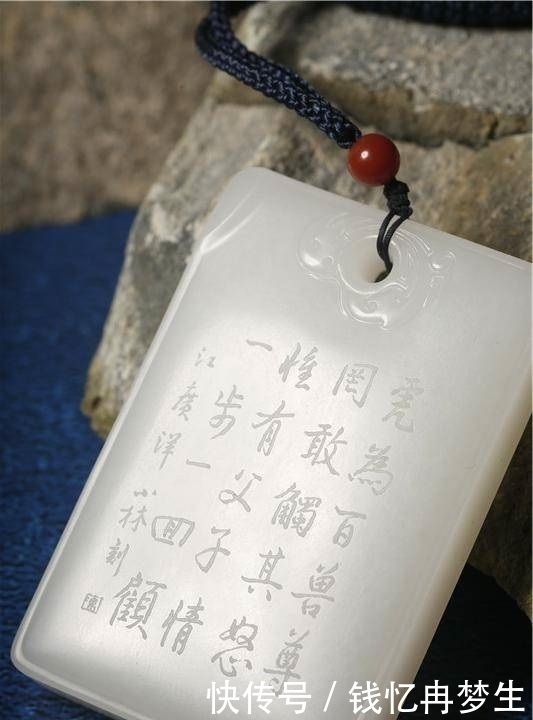 虎為百兽尊
罔敢觸其怒
惟有父子情
一步一回顧
江廣洋 小林刻
快传号 / 钱忆冉梦生